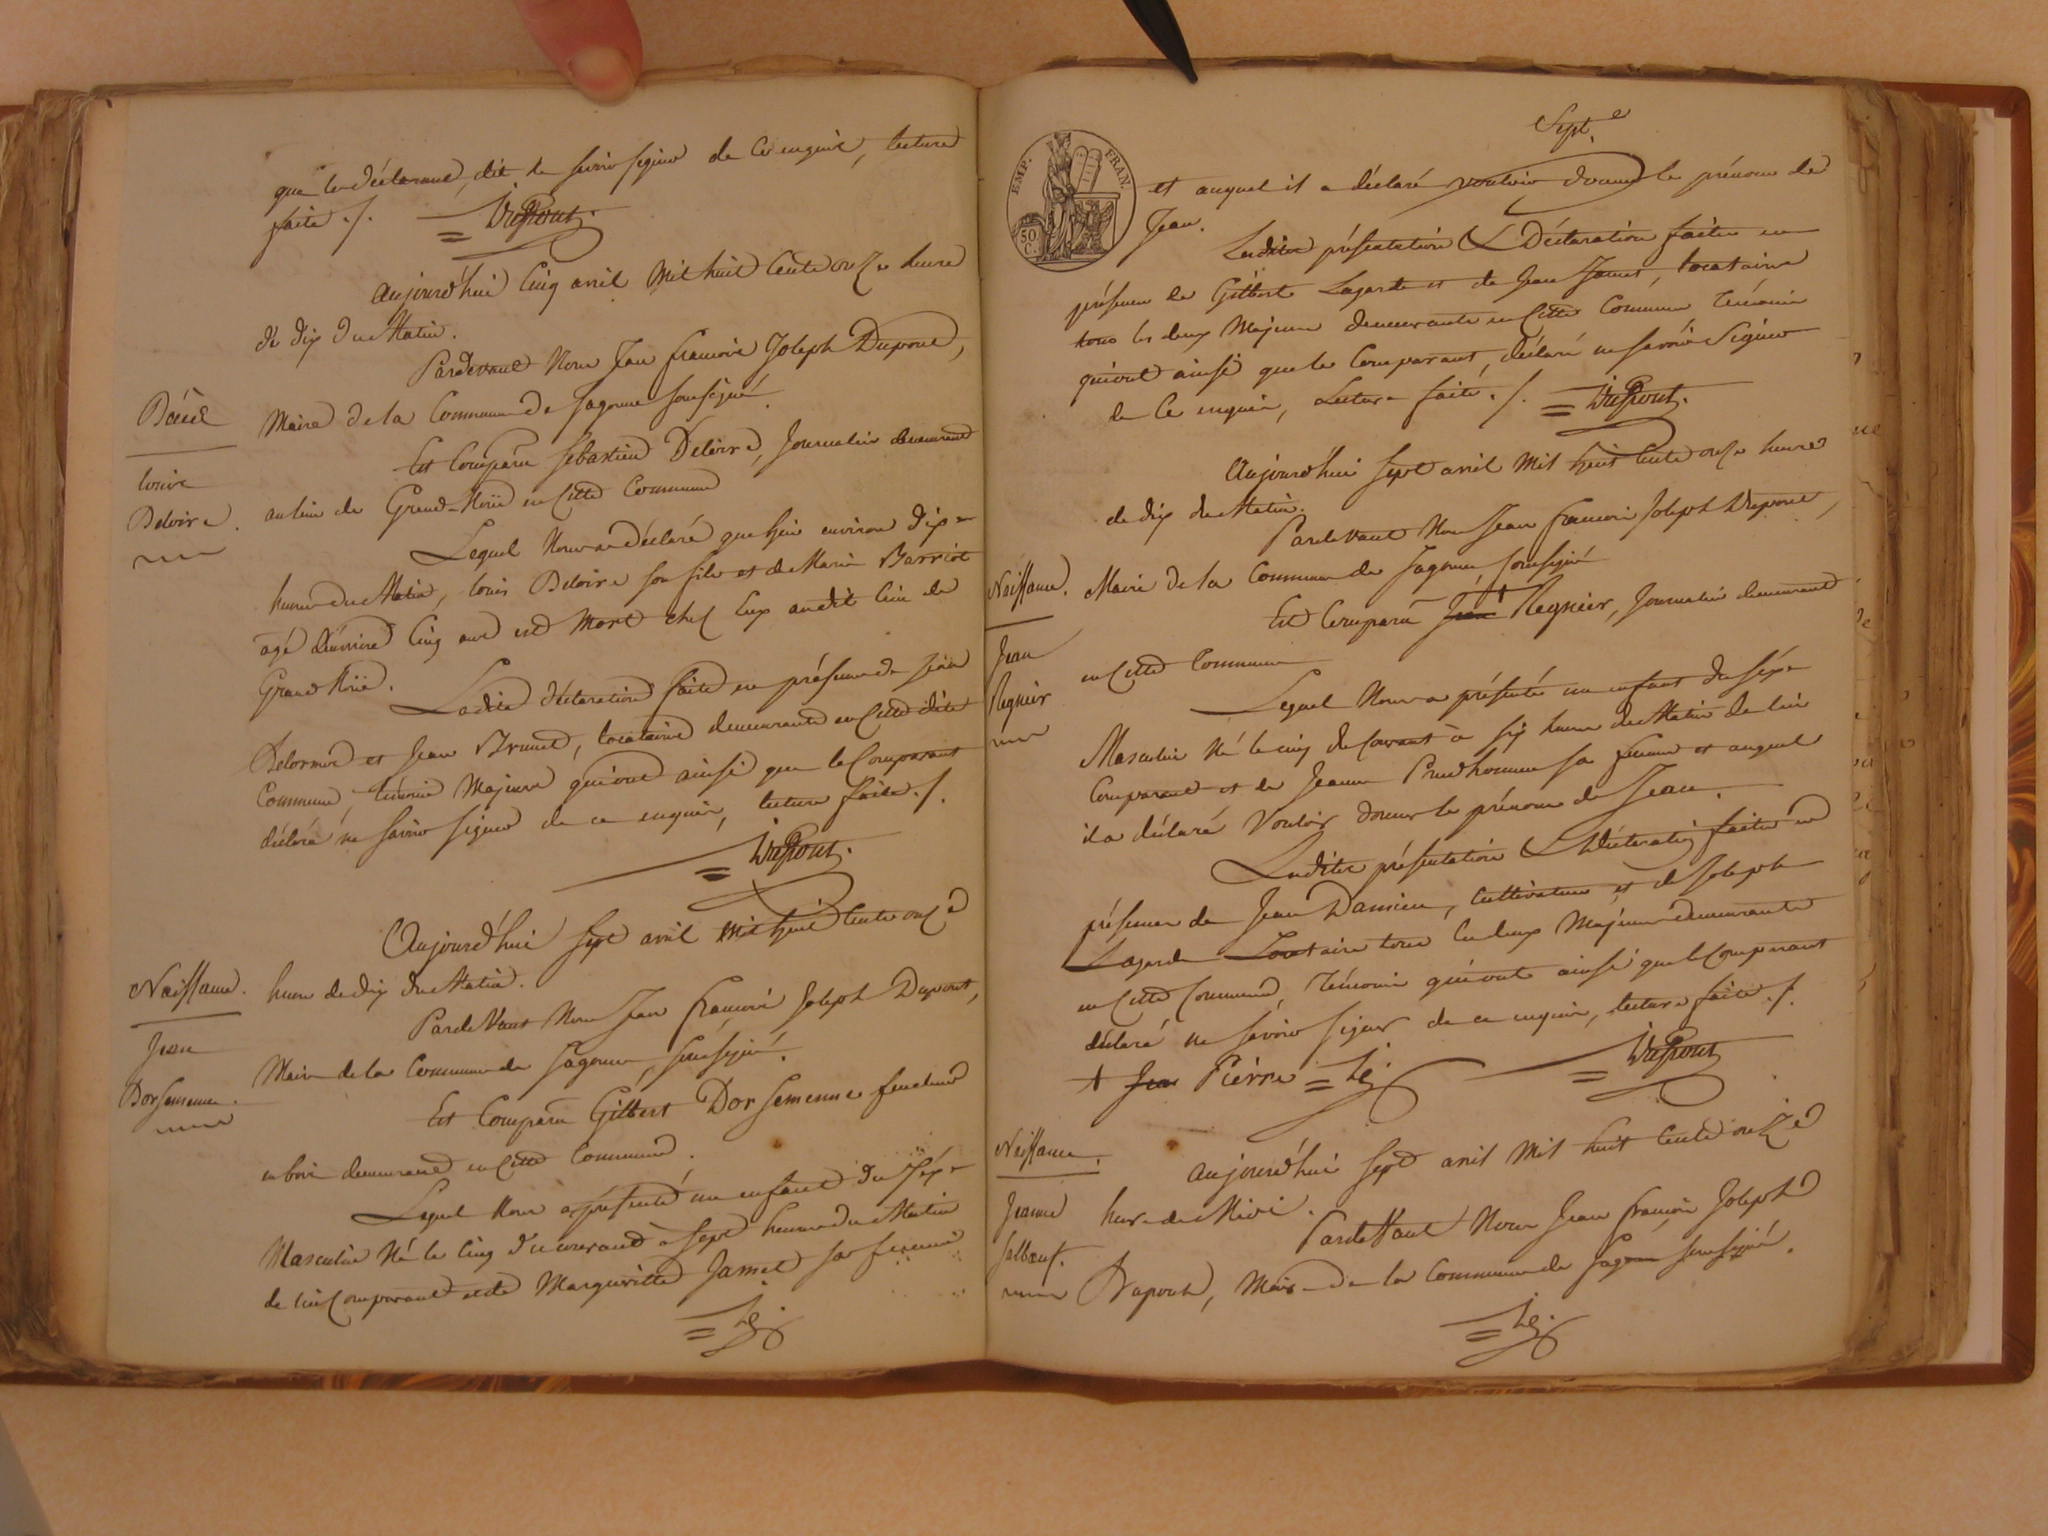 que le déclarant, dit ne savoir signer de ce enquis, lecture
faite ./. DuPont.
Aujourd'hui Cinq avril Mil huit Cents onze heure
de dix du Matin.
Pardevant Nous Jean françois Joseph Dupont,
Maire de la Commune de Sagonne soussigné.
Décès
Est Comparu Sébastien Deloire, Journalier demeurant
Louis
Deloire.
au lieu de Grand-Noüe en Cette Commune
Lequel Nous a déclaré que hier environ dix
heures du Matin, Louis Deloire son fils et de Marie Barriot
agé d'environ Cinq ans est Mort chez Eux audit lieu de
Grand Noüe.
Ladite déclaration faite en présence de Jean
Delorme et Jean Brunet, locataires demeurants en Cette dite
Commune, témoins Majeurs qui ont ainsi que le Comparant
déclaré ne savoir signer de ce enquis, lecture faite ./.
DuPont.
Aujourd'hui sept avril Mil huit Cents onze
Naissance.
heure de dix du Matin.
Pardevant Nous Jean françois Joseph Dupont,
Jean
Dorsemenne.
Maire de la Commune de Sagonne, soussigné.
Est Comparu Gilbert Dorsemenne fendeur
en bois demeurant en Cette Commune.
Lequel Nous a présenté un enfant du séxe
Masculin Né le Cinq du courant à sept heures du Matin
de lui Comparant et de Margueritte Jamet sa femme
Sept.e
EMP. FRAN.
50 C.
et auquel il a déclaré vouloir donner le prénom de
Jean.
Ladite présentation & Déclaration faites en
présence de Gilbert Lagarde et de Jean Jamet, locataires
tous les deux Majeurs demeurants en Cette Commune Témoins
qui ont ainsi que le Comparant, déclaré ne savoir Signer
de Ce enquis, Lecture faite ./. DuPont.
Aujourd'hui sept avril Mil huit Cents onze heure
de dix du Matin.
Pardevant Nous Jean françois Joseph Dupont,
Naissance.
Maire de la Commune de Sagonne soussigné
Est Comparu Jean + Regnier, Journalier demeurant
Jean
Regnier
en Cette Commune
Lequel Nous a présenté un enfant du séxe
Masculin Né le cinq du Courant à six heures du Matin de lui
Comparant et de Jeanne Prudhomme sa femme et auquel
il a déclaré Vouloir donner le prénom de Jean.
Ladite présentation & Déclaration faites en
présence de Jean Damien, Cultivateur et de Joseph
Lagarde Locataire tous les deux Majeurs demeurants
en Cette Commune, Témoins qui ont ainsi que le Comparant
déclaré ne savoir signer de ce enquis, lecture faite ./.
+ Jean Pierre DuPont
Naissance.
Aujourd'hui sept avril Mil huit Cents onze
Jeanne
heure de Midi.
Pardevant Nous Jean françois Joseph
Dupont, Maire de la Commune de Sagonne soussigné.